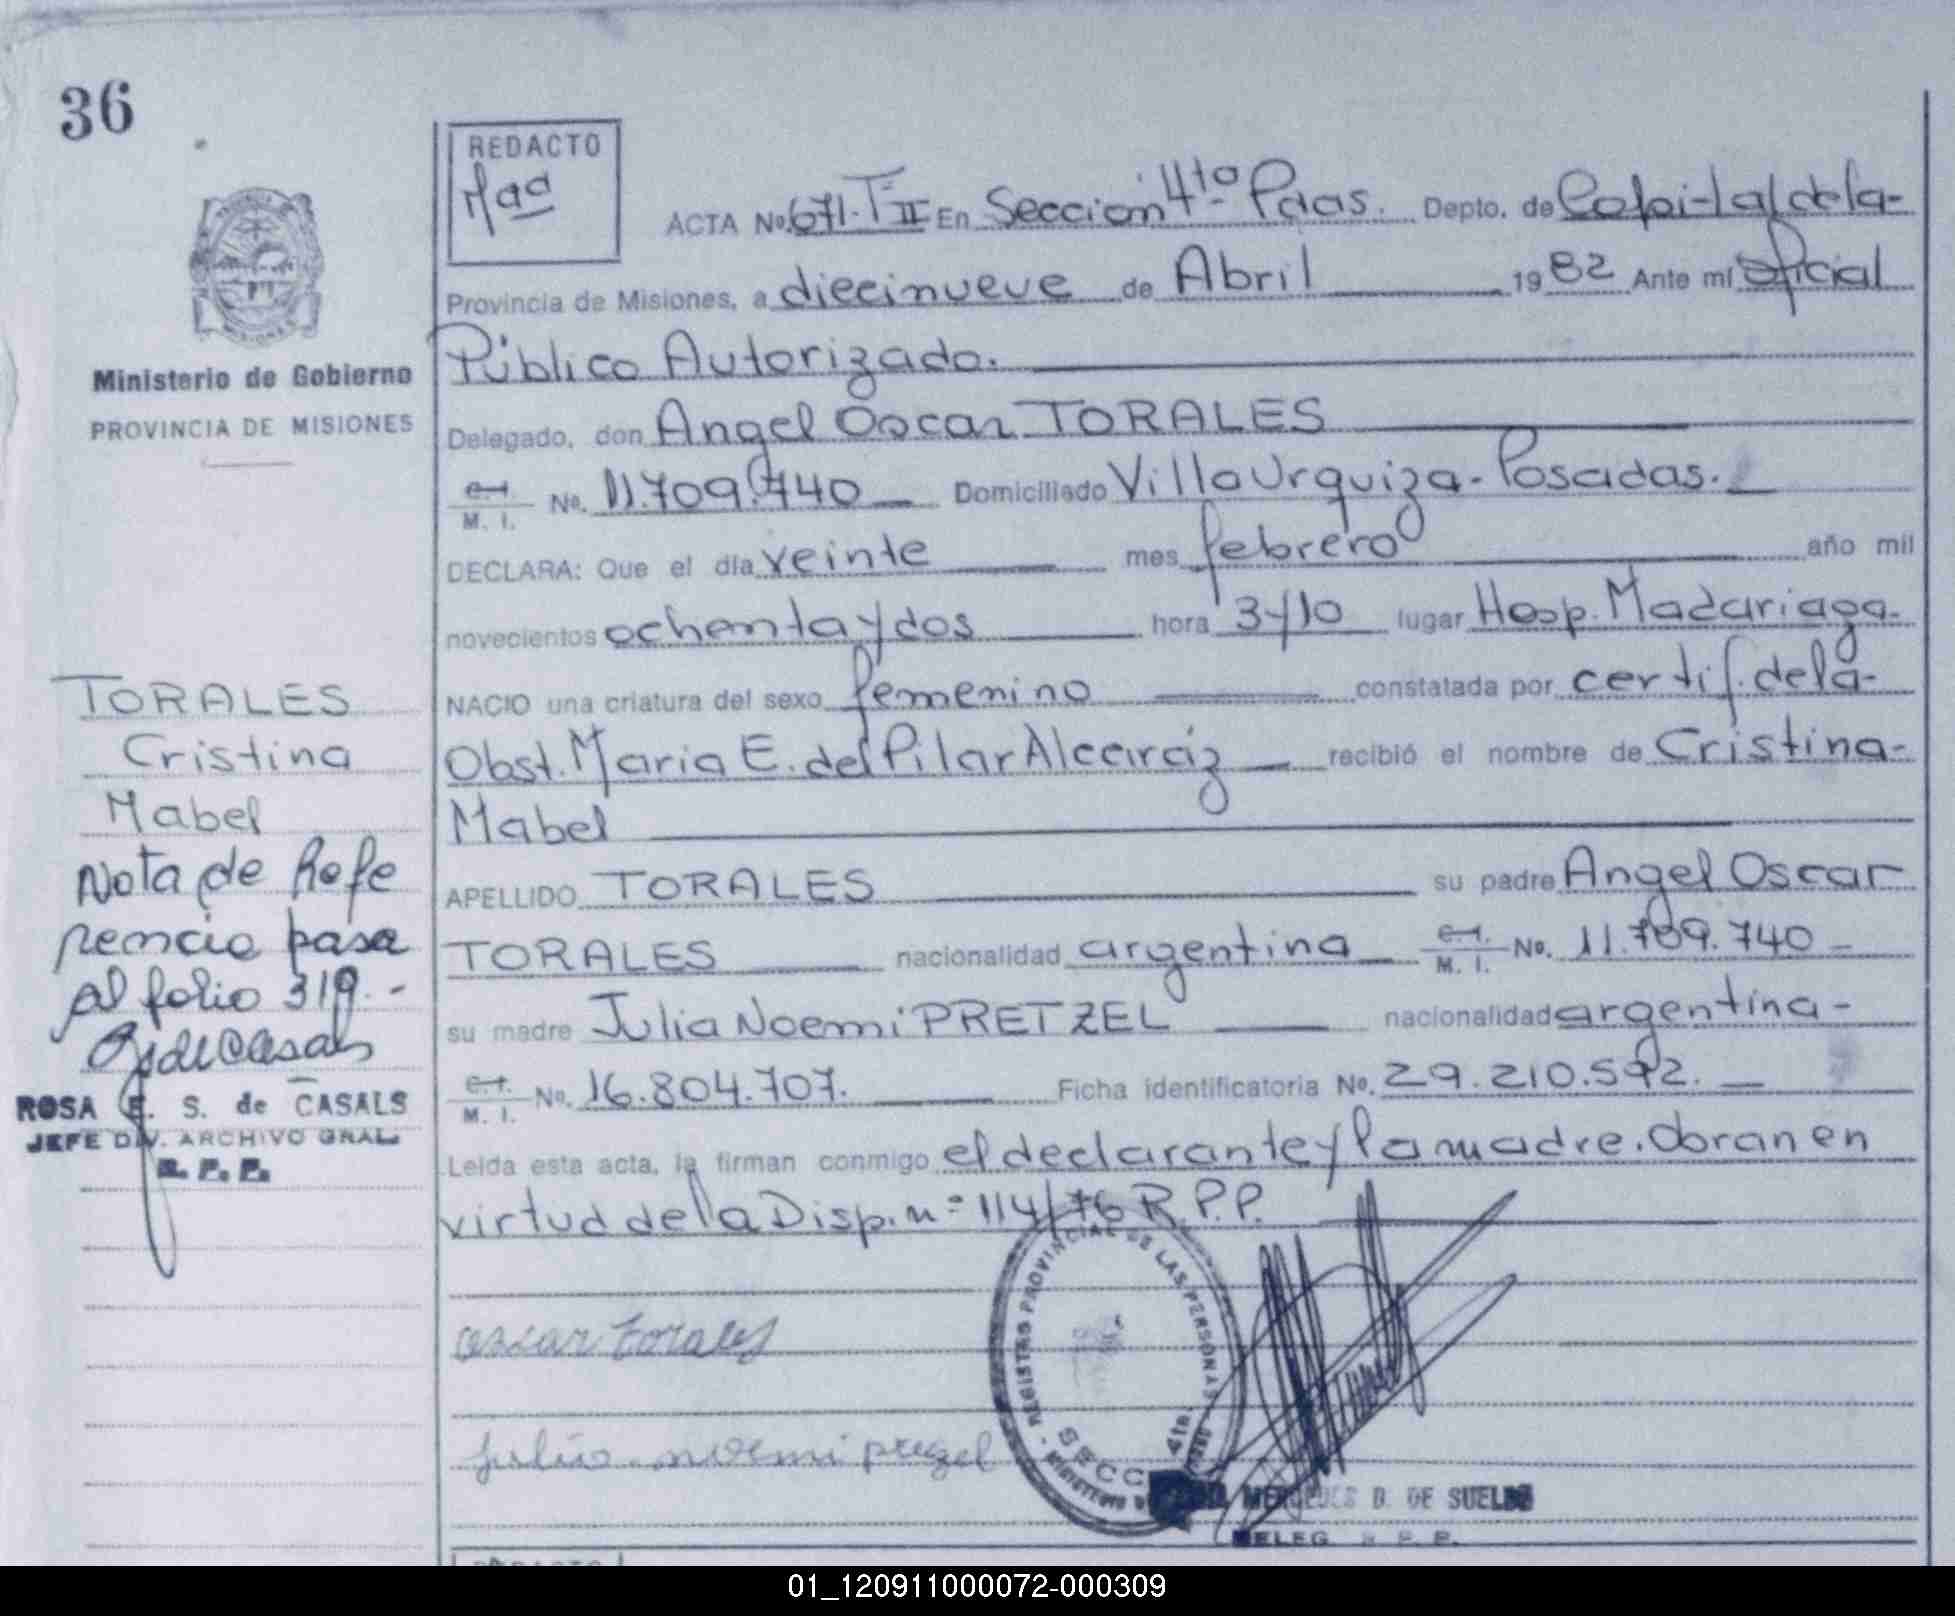 36
REDACTO
Mªª
ACTA No. 671. T II En Sección 4to Pdas. Depto. de Capital de la-
Provincia de Misiones, a diecinueve de Abril 19 82 Ante mí Oficial
Público Autorizado.
Delegado, don Angel Oscar TORALES
C. I. M. I. No. 11.709.740 Domiciliado Villa Urquiza - Posadas.
DECLARA: Que el día veinte mes febrero año mil
novecientos ochenta y dos hora 3 y 10 lugar Hosp. Madariaga-
NACIO una criatura del sexo femenino constatada por certif. de la-
Obst. Maria E. del Pilar Alcaráz recibió el nombre de Cristina-
Mabel
APELLIDO TORALES su padre Angel Oscar
TORALES nacionalidad argentina C. I. M. I. No. 11.709.740-
su madre Julia Noemi PRETZEL nacionalidad argentina-
C. I. M. I. No. 16.804.707. Ficha identificatoria No. 29.210.592.
Leída esta acta, la firman conmigo el declarante y la madre. Obran en
virtud de la Disp. nº 114/76 R.P.P.
oscar torales
julia noemi
REGISTRO PROVINCIAL DE LAS PERSONAS
SECC. 4ta.
MERCEDES B. DE
DELEG. R. P. P.
Ministerio de Gobierno
PROVINCIA DE MISIONES
TORALES
Cristina
Mabel
Nota de Refe
rencia pasa
al folio 319.-
ROSA E. S. de CASALS
JEFE DIV. ARCHIVO GRAL
R. P. P.
REDACTO
01_120911000072-000309